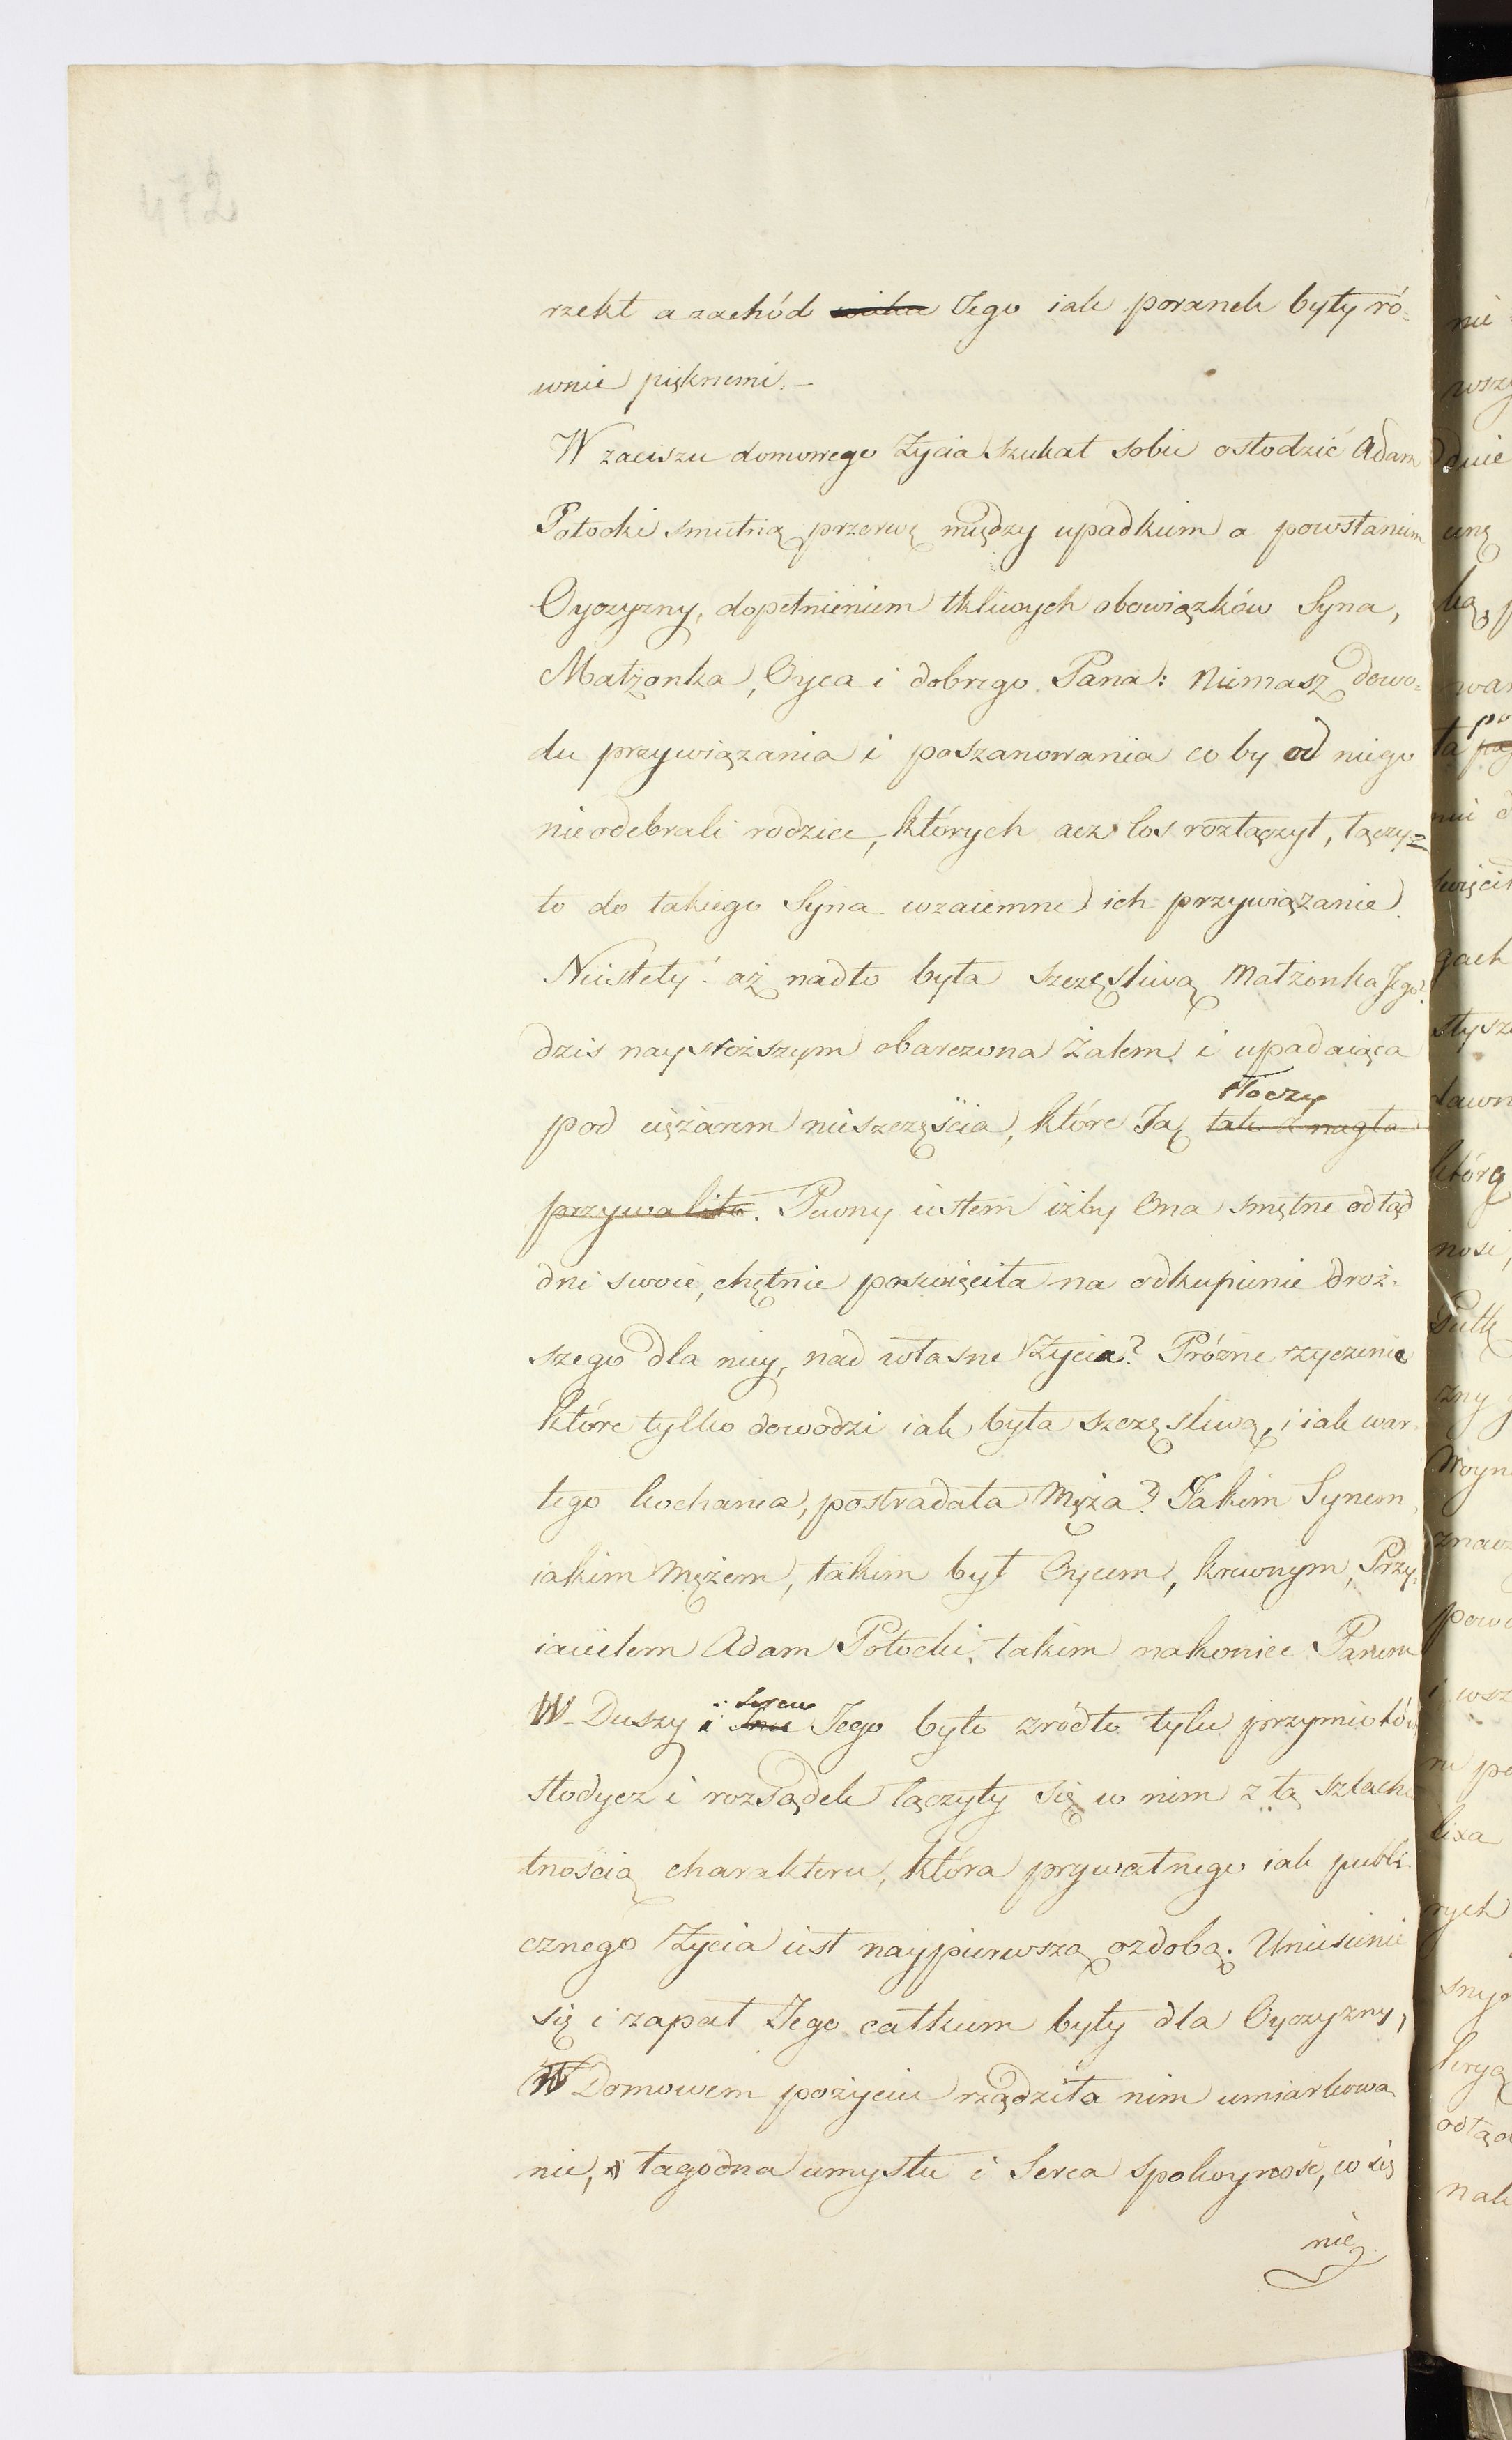 472
rzekł a zachód wieku Jego iak poranek były ró-
wnie pięknemi.-
W zaciszu domowego Życia szukał sobie osłodzić Adam
Potocki smutną przerwę między upadkiem a powstaniem
Oyczyzny, dopełnieniem tkliwych obowiązków Syna,
Małżonka, Oyca i dobrego Pana: Niemasz dowo-
du przywiązania i poszanowania co by od niego
nieodebrali rodzice, których acz los rozłączył, łączy=
ło do takiego Syna wzaiemne ich przywiązanie.
Niestety! aż nadto była szczęśliwą Małżonka Jego?
dziś naysroższym obarczona Żalem i upadaiąca
pod ciężarem nieszczęścia, które Ją tak z nagła
tłoczy
przywaliło. Pewny iestem iżby Ona smętne odtąd
dni swoie, chętnie poswięciła na odkupienie droż-
szego dla niey, nad własne Życia? Próżne życzenie
które tylko dowodzi iak była szczęśliwą, i iak war-
tego kochania, postradała Męża? Jakim Synem,
iakim Mężem, takim był Oycem, krewnym, Przy-
iacielem Adam Potocki, takim nakoniec Panem
W Duszy i Sercu Jego było zródło tylu przymiotów
słodycz i rozsądek łączyły się w nim z tą szlache
tnością charakteru, która prywatnego iak publi-
cznego Życia iest naypierwszą ozdobą. Uniesienie
się i zapał Jego całkiem były dla Oyczyzny,
W Domowem pożyciu rządziła nim umiarkowa
nie, łagodna umysłu i Serca spokoyność, co się
nie